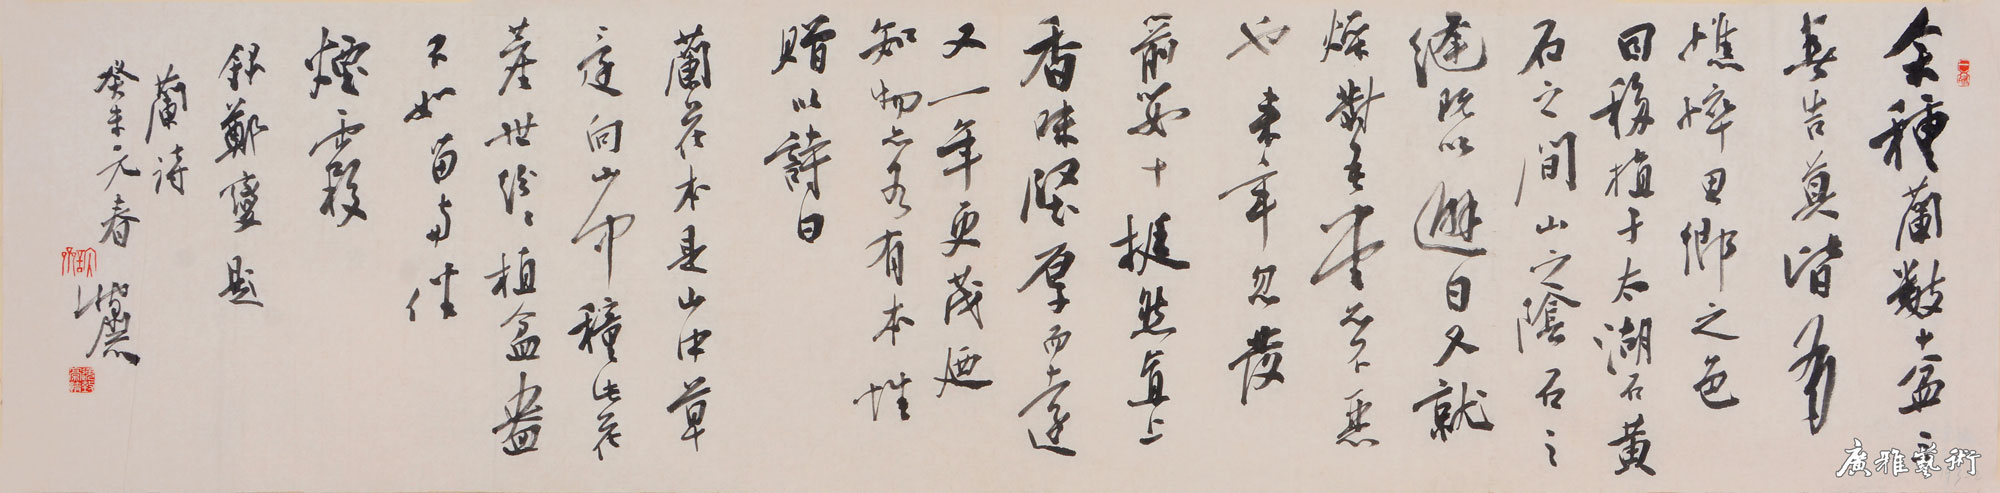 余種蘭數十盆三
春告莫皆有
憔悴思鄉之色
因移植于太湖石黃
石之間山之陰石之
縫既以避日又就
燥對吾堂亦不惡
也来年忽發
箭數十挺然直上
香味堅厚而遠
又一年更茂迺
知物亦各有本性
贈以詩曰
蘭花本是山中草
還向山中種此花
塵世紛々植盆盎
不如留與伴
煙霞
錄鄭燮題
蘭詩
癸未元春
廣雅藝術